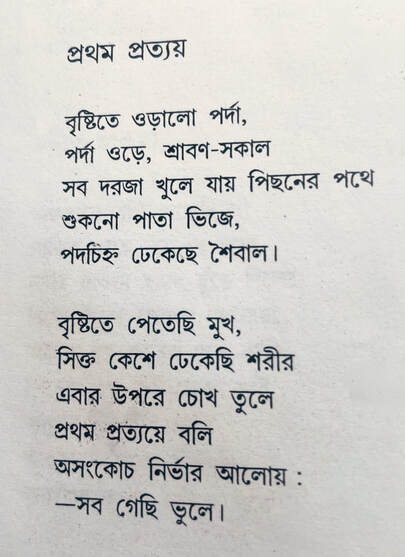 প্রথম প্রত্যয়
বৃষ্টিতে ওড়ালো পর্দা,
পর্দা ওড়ে, শ্রাবণ-সকাল
সব দরজা খুলে যায় পিছনের পথে
শুকনো পাতা ভিজে,
পদচিহ্ন ঢেকেছে শৈবাল।
বৃষ্টিতে পেতেছি মুখ,
সিক্ত কেশে ঢেকেছি শরীর
এবার উপরে চোখ তুলে
প্রথম প্রত্যয়ে বলি
অসংকোচ নির্ভার আলোয় :
—সব গেছি ভুলে।